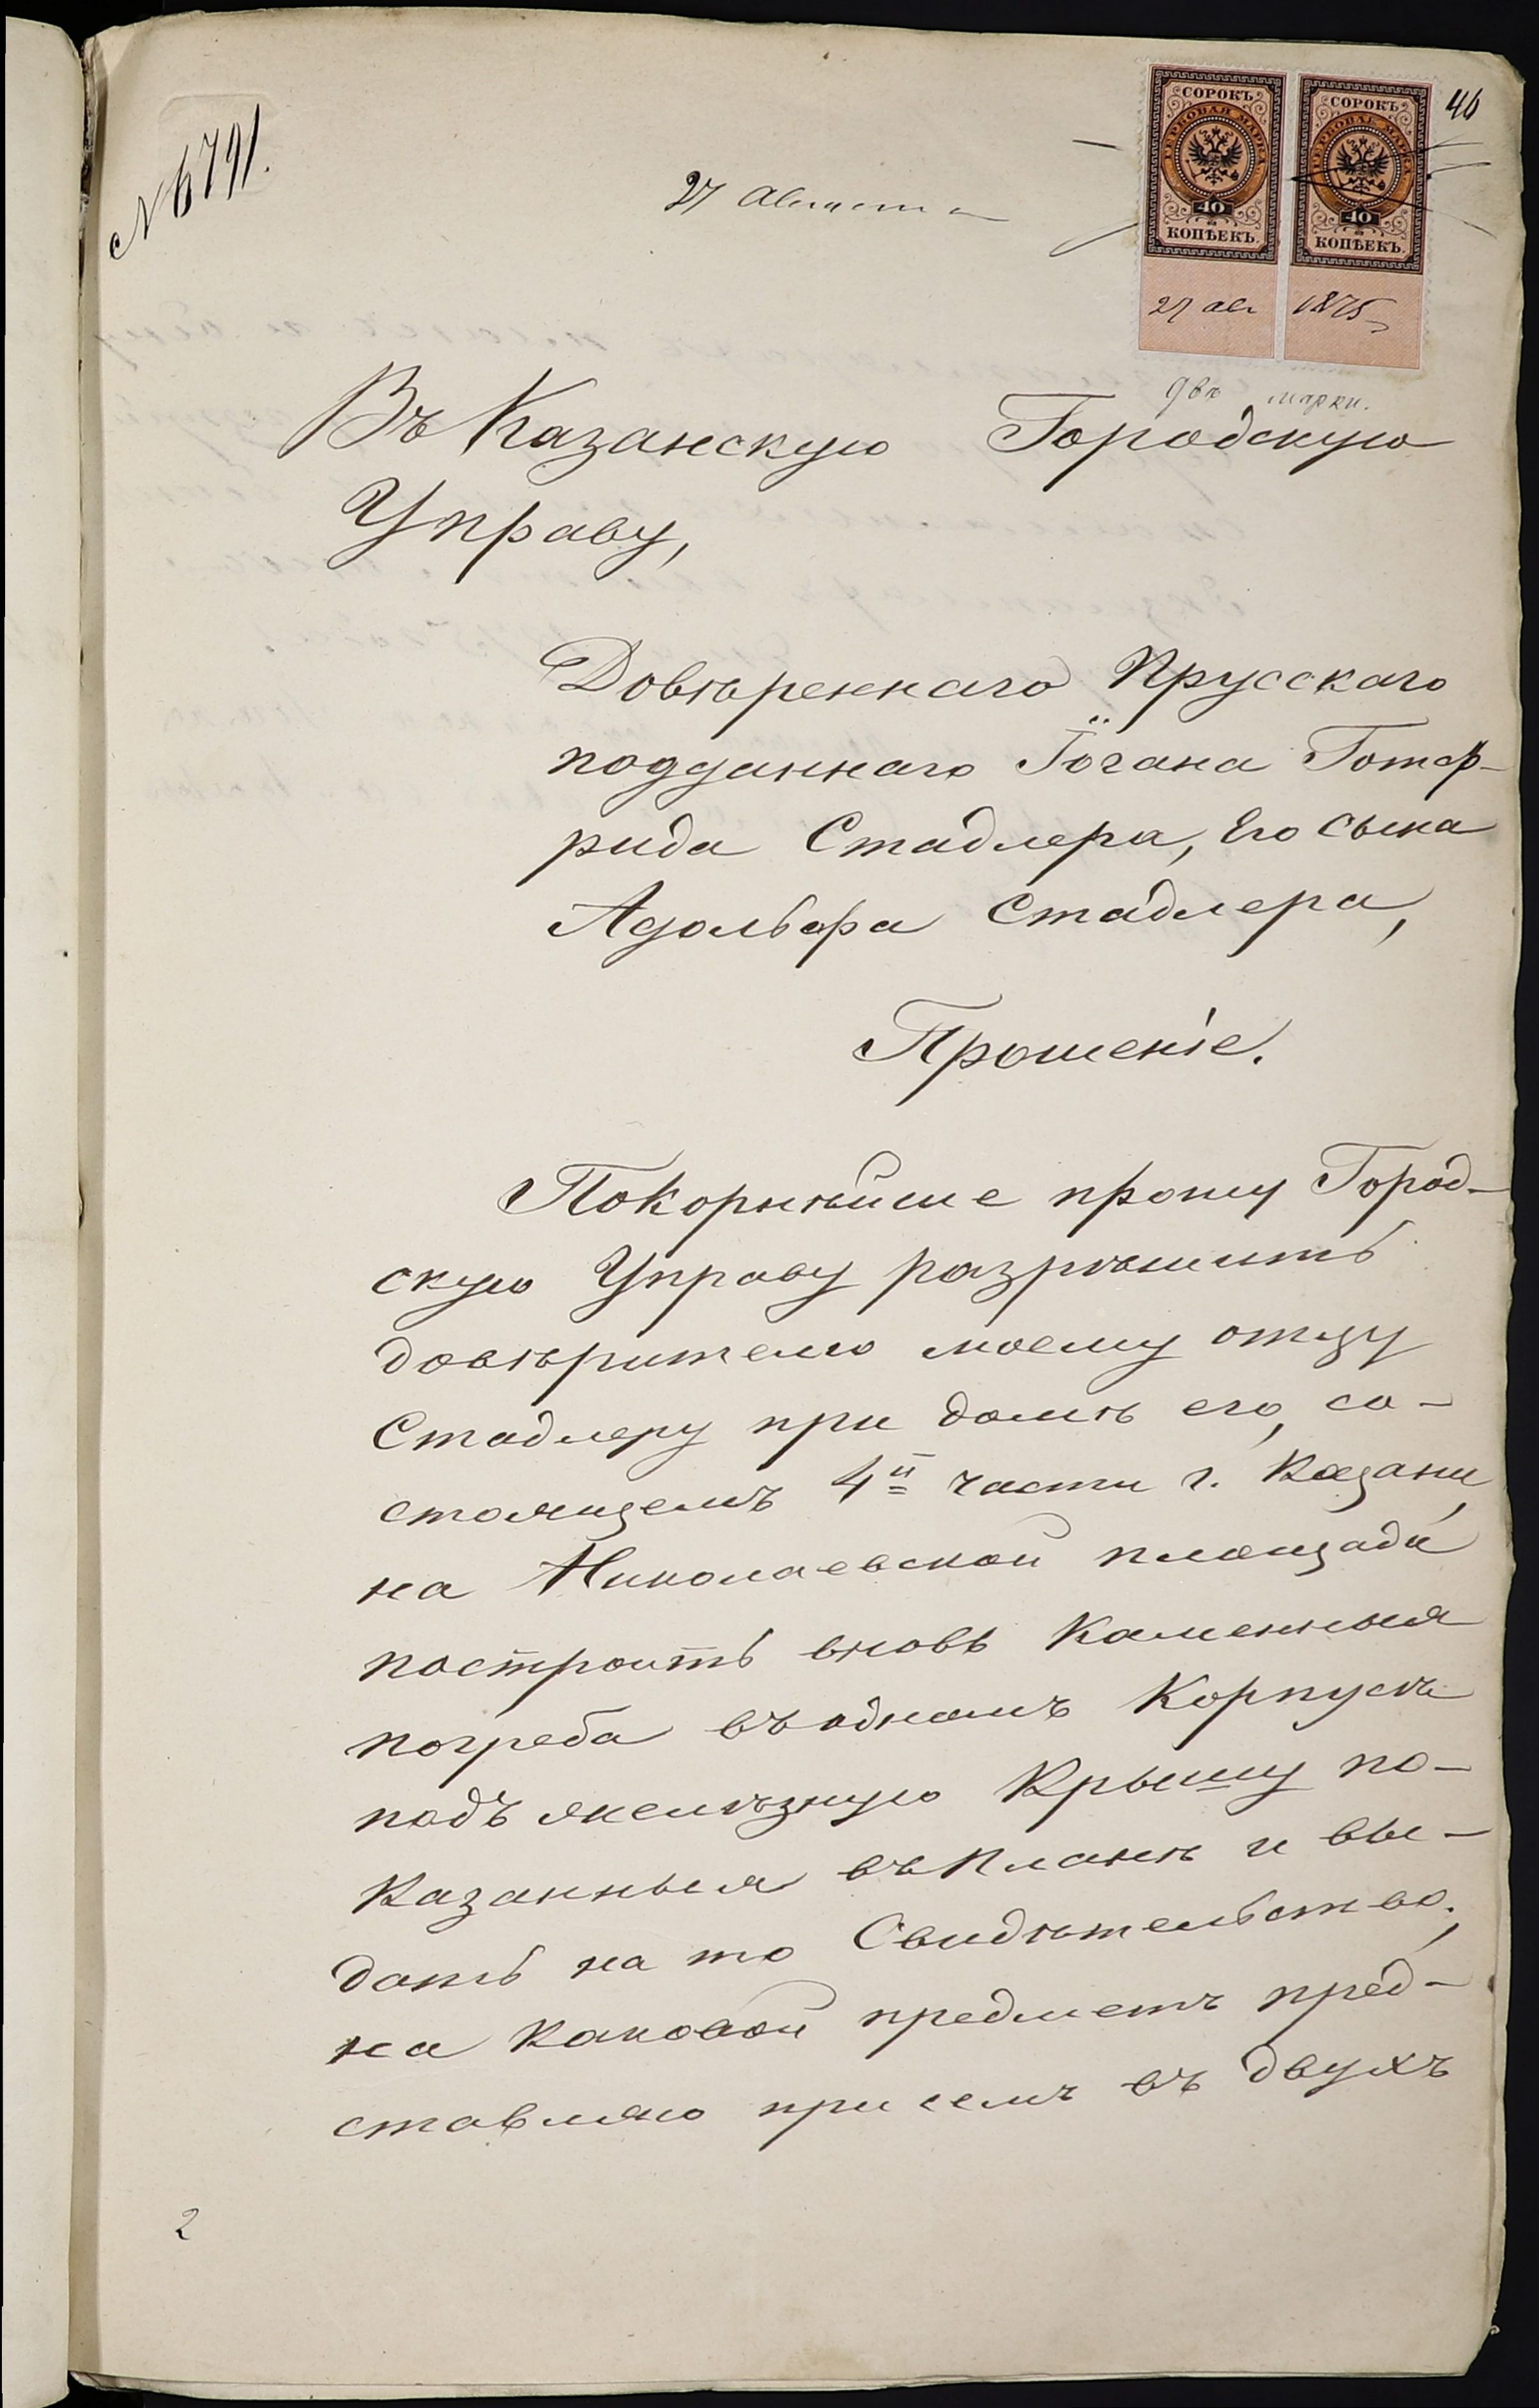 46
№ 6791.
27 Августа
СОРОКЪ
ГЕРБОВАЯ МАРКА
40
КОПѢЕКЪ.
СОРОКЪ
ГЕРБОВАЯ МАРКА
40
КОПѢЕКЪ.
27 авг 1875
двѣ марки.
Въ Казанскую Городскую
Управу,
Довѣреннаго Прусскаго
подданнаго Іогана Готф-
рида Стадлера, Его сына
Адольфа Стадлера,
Прошеніе.
Покорнѣйше прошу Город-
скую Управу разрѣшить
довѣрителю моему отцу
Стадлеру при домѣ его, со-
стоящемъ 4й части г. Казани,
на Николаевской площади
построить вновь Каменныя
погреба въ одномъ Корпусѣ
подъ желѣзную Крышу по-
казанныя въ планѣ и вы-
дать на то Свидѣтельство,
на каковой предметъ пред-
ставляю при семъ въ двухъ
2